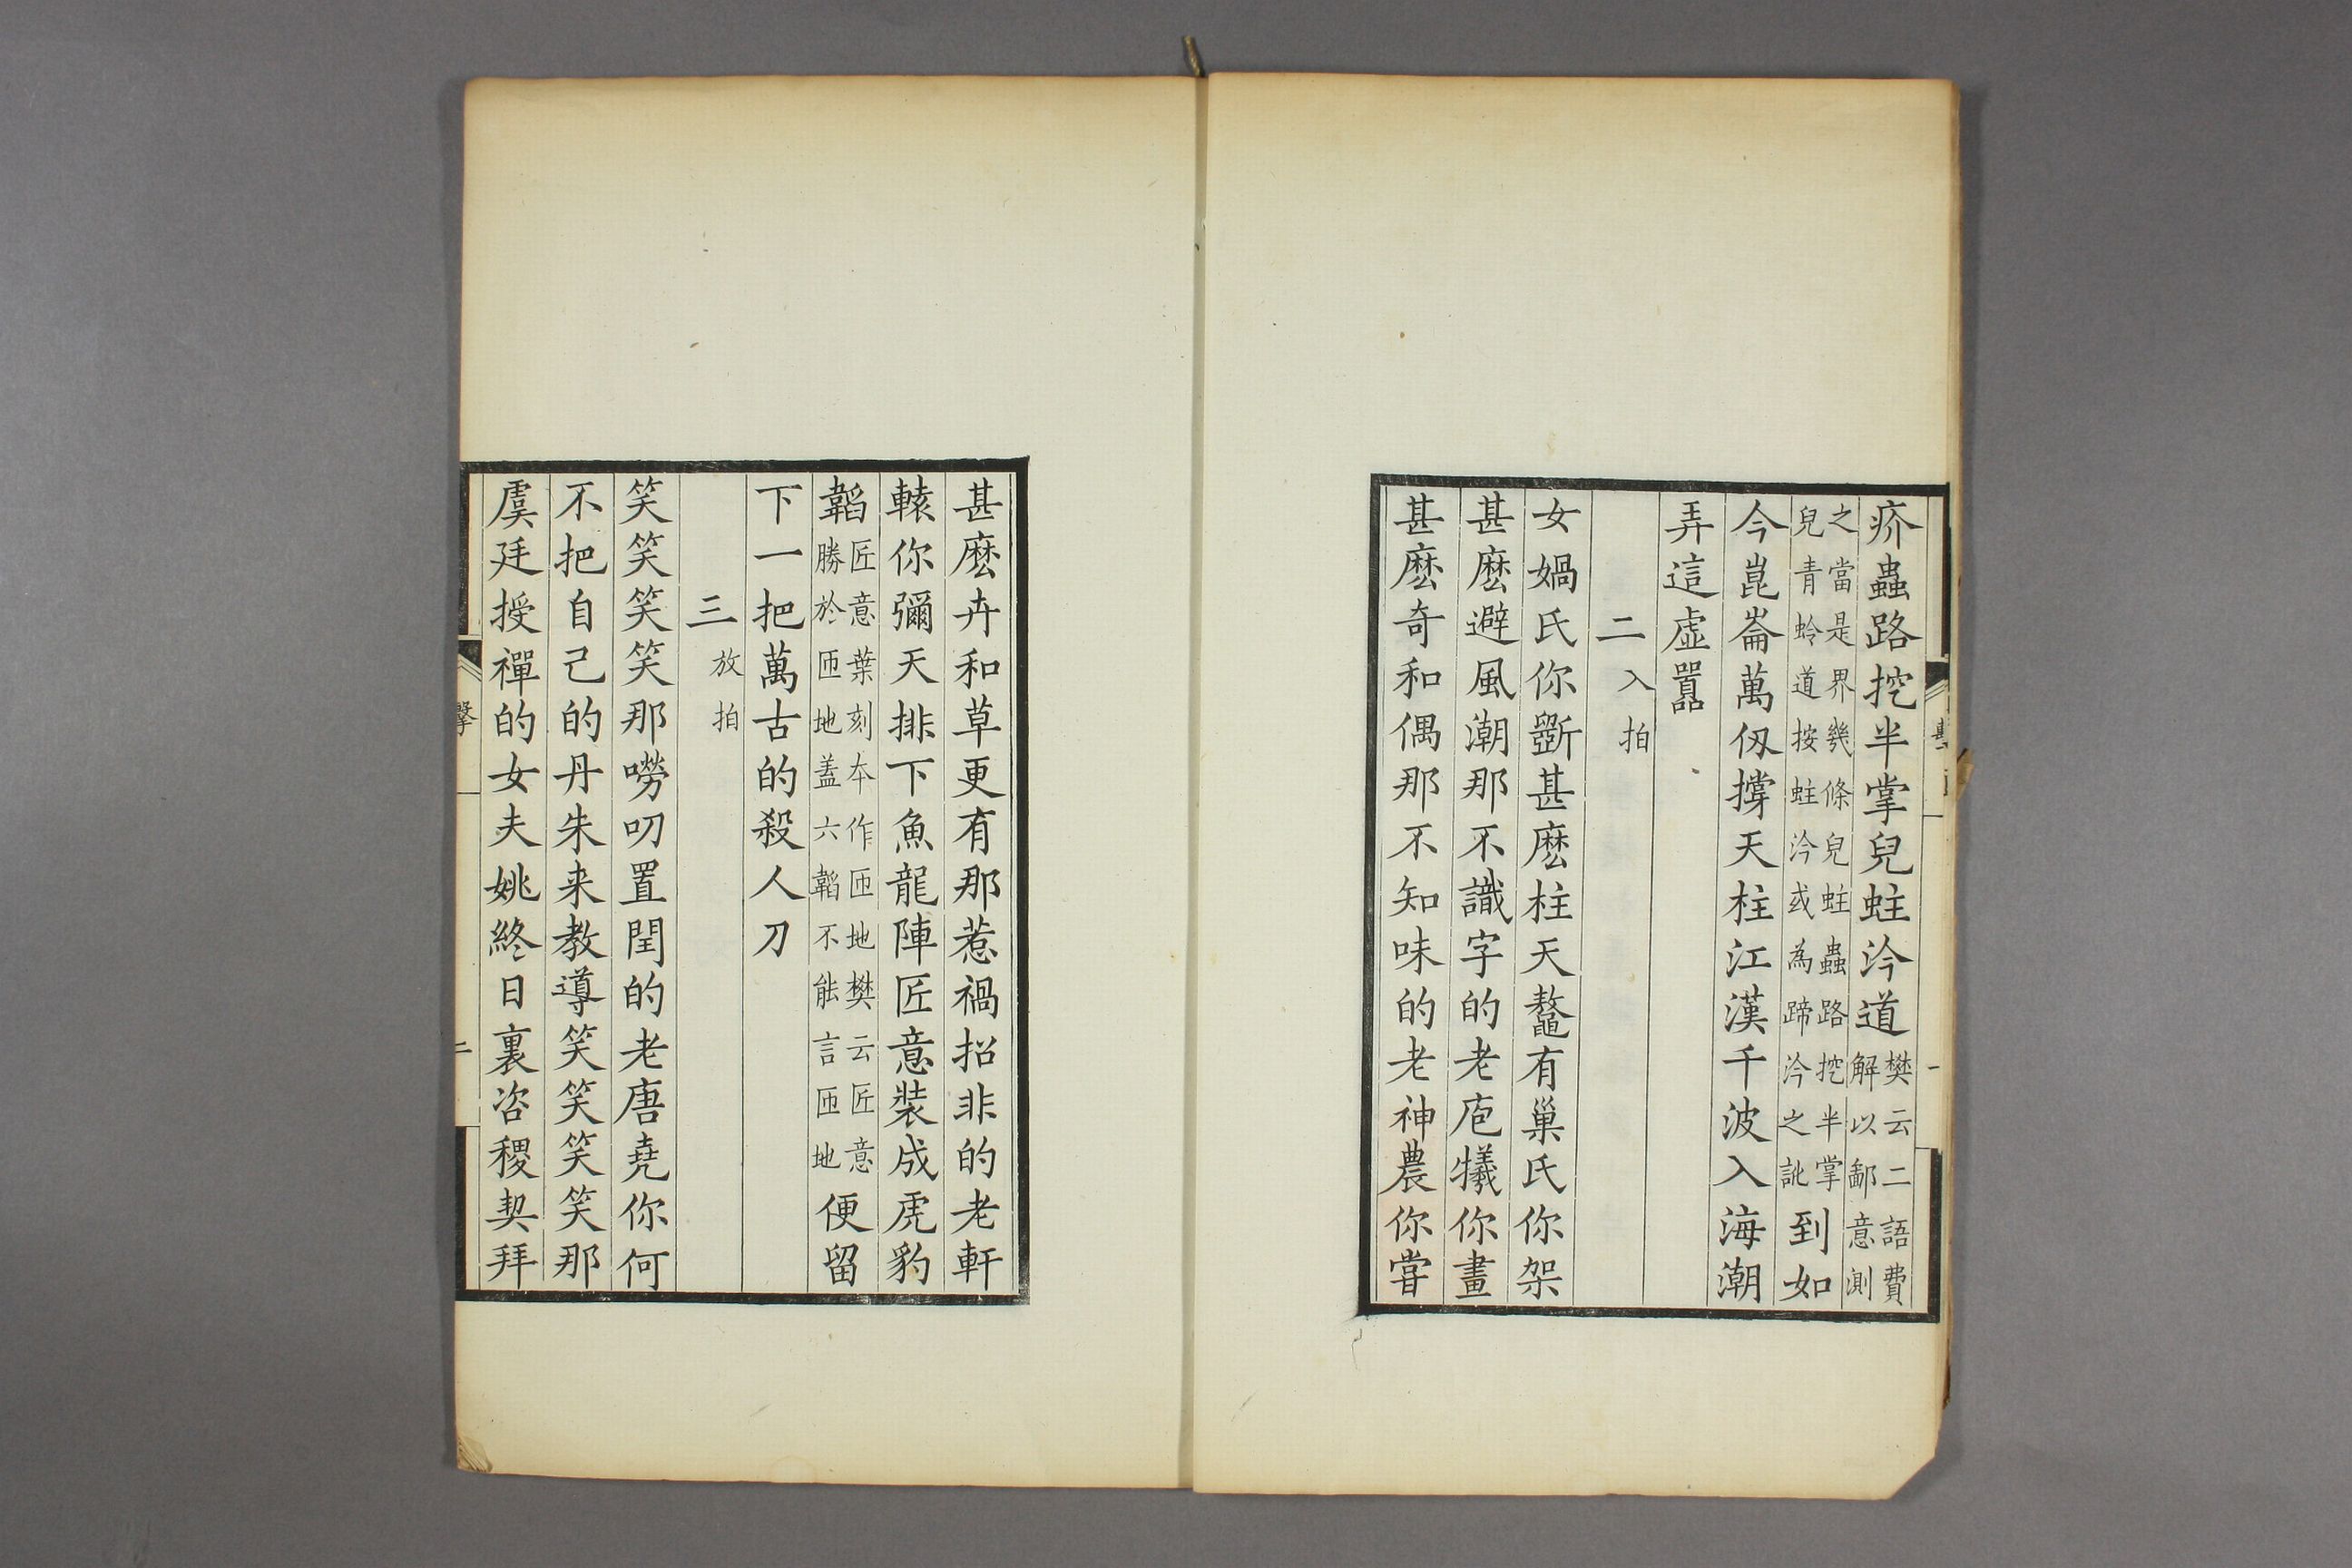 疥蟲路挖半掌兒蛀㳂道樊云二語費解以鄙意測
之當是界幾條兒蛀蟲路挖半掌兒青蛉道按蛀㳂或為蹄㳂之訛到如
今崑崙萬仭撐天柱江漢千波入海潮
弄這虛囂
二入拍
女媧氏你斵甚麽柱天鼇有巢氏你架
甚麽避風潮那不識字的老庖犧你畫
甚麽奇和偶那不知味的老神農你嘗
甚麽卉和草更有那惹禍招非的老軒
轅你彌天排下魚龍陣匠意裝成虎豹
韜匠意葉刻本作匝地樊云匠意勝於匝地蓋六韜不能言匝地便留
下一把萬古的殺人刀
三放拍
笑笑笑笑那嘮叨置閏的老唐堯你何
不把自己的丹朱来教導笑笑笑笑那
虞廷授禪的女夫姚終日裏咨稷契拜
擊
二
一